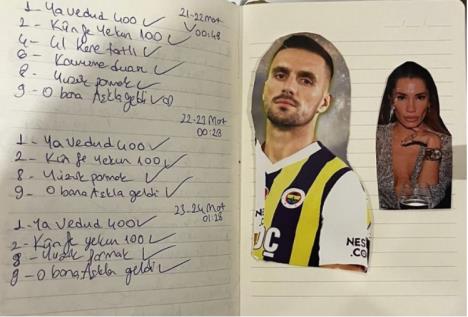 1 - Ya Vedud 400 ✓
21-22 Mart
00:48
2 - Kün fe Yekun 100 ✓
4 - 41 kere fatli ✓
6 - Kavuşma duası ✓
8 - Yüzük parmak ✓
9 - O bana Aşkla geldi ✓
22-23 Mart
00:28
1 - Ya Vedud 400 ✓
2 - Kün fe Yekun 100 ✓
8 - Yüzük parmak ✓
9 - O bana Aşkla geldi ✓
23-24 Mart
01:28
1 - Ya Vedud 400 ✓
2 - Kün fe yekun 100 ✓
8 - Yüzük parmak ✓
9 - O bana Aşkla geldi ✓
NES
.CO
NES
.CO